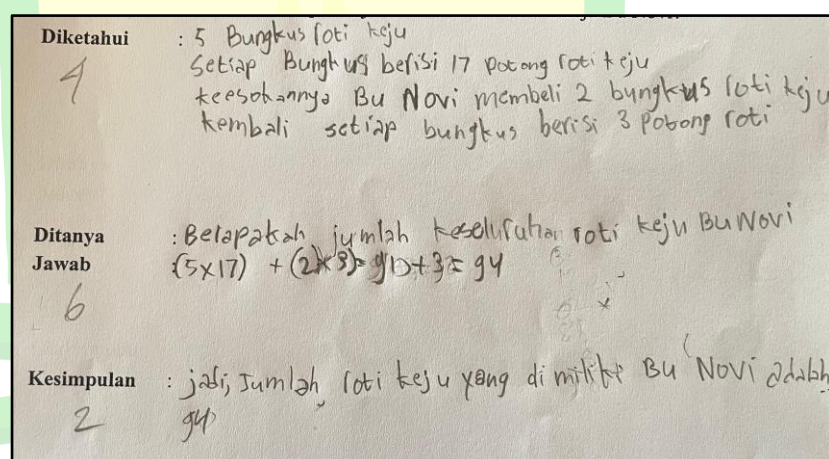 Diketahui : 5 Bungkus roti keju
4 Setiap Bungkus berisi 17 potong roti keju
keesokannya Bu Novi membeli 2 bungkus roti keju
kembali setiap bungkus berisi 3 Potong roti
Ditanya : Belapakah jumlah keseluruhan roti keju Bu Novi
Jawab : (5x17) + (2x3) = 91 + 3 = 94
6
Kesimpulan : jadi, Jumlah roti keju yang di miliki Bu Novi adalah
2 94